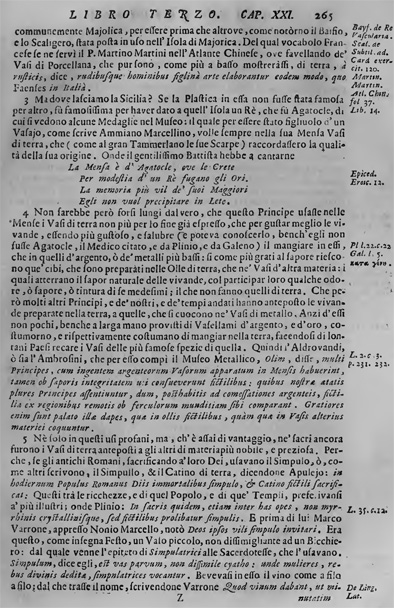 LIBRO TERZO. CAP. XXI. 265
communemente Majolica, per essere prima che altrove, come notòrno il Baifio,
e lo Scaligero, stata posta in uso nell'Isola di Majorica. Del qual vocabolo Fran-
cese se ne servì il P. Martino Martini nell'Atlante Chinese, ove favellando de'
Vasi di Porcellana, che pur sono, come più a basso mostrerassi, di terra, à
rusticis, dice, rudibusque hominibus figlinâ arte elaborantur eodem modo, quo
Faenses in Italiâ.
3 Ma dove lasciamo la Sicilia? Se la Plastica in essa non fusse stata famosa
per altro, fù famosissima per haver dato a quell'Isola un Rè, che fù Agatocle, di
cui si vedono alcune Medaglie nel Museo: il quale per essere stato figliuolo d'un
Vasajo, come scrive Ammiano Marcellino, volle sempre nella sua Mensa Vasi
di terra, che (come al gran Tammerlano le sue Scarpe) raccordassero la quali-
tà della sua origine. Onde il gentilissimo Battista hebbe a cantarne
La Mensa è d'Agatocle, ove le Crete
Per modestia d'un Rè fugano gli Ori.
La memoria più vil de' suoi Maggiori
Egli non vuol precipitare in Lete.
4 Non sarebbe però forsi lungi dal vero, che questo Principe usasse nelle
Mense i Vasi di terra non più per lo fine già espresso, che per gustar meglio le vi-
vande, essendo più gustoso, e salubre (e poteva conoscerlo, bench'egli non
fusse Agatocle, il Medico citato, e da Plinio, e da Galeno) il mangiare in essi,
che in quelli d'argento, ò de' metalli più bassi: sì come più grati al sapore riesco-
no que' cibi, che sono preparati nelle Olle di terra, che ne' Vasi d'altra materia: i
quali atterrano il sapor naturale delle vivande, col participar loro qualche odo-
re, ò sapore, ò tintura di se medesimi; il che non fanno quelli di terra. Che pe-
rò molti altri Principi, e de' nostri, e de' tempi andati hanno anteposto le vivan-
de preparate nella terra, a quelle, che si cuocono ne' Vasi di metallo. Anzi d'essi
non pochi, benche a larga mano provisti di Vasellami d'argento, e d'oro, co-
stumorno, e rispettivamente costumano di mangiar nella terra, facendosi di lon-
tani Paesi recare i Vasi delle più famose spezie di quella. Quindi l'Aldrovandi,
ò sia l'Ambrosini, che per esso compì il Museo Metallico, Olim, disse, multi
Principes, cum ingentem argenteorum Vasorum apparatum in Mensis habuerint,
tamen ob saporis integritatem uti consueverunt fictilibus: quibus nostræ ætatis
plures Principes assentiuntur, dum, posthabitis ad comessationes argenteis, ficti-
lia ex regionibus remotis ob ferculorum munditiam sibi comparant. Gratiores
enim sunt palato illæ dapes, quæ in ollis fictilibus, quàm quæ in Vasis alterius
materiei coquuntur.
5 Nè solo in questi usi profani, ma, ch'è assai di vantaggio, ne' sacri ancora
furono i Vasi di terra anteposti a gli altri di materia più nobile, e preziosa. Per-
che, se gli antichi Romani, sacrificando a' loro Dei, usavano il Simpulo, ò, co-
me altri scrivono, il Simpullo, & il Catino di terra, dicendone Apulejo: in
hodiernum Populus Romanus Diis immortalibus simpulo, & Catino fictili sacrifi-
cat: Questi trà le ricchezze, e di quel Popolo, e di que' Tempii, preferivansi
a' più illustri; onde Plinio: In sacris quidem, etiam inter has opes, non myr-
rhinis crystallinisque, sed fictilibus prolibatur simpulis. E prima di lui Marco
Varrone, appresso Nonio Marcello, notò Deos ipsos vili simpulo invitari. Era
questo, come insegna Festo, un Vaso piccolo, non dissimigliante ad un Bicchie-
ro: dal quale venne l'epiteto di Simpulatrici alle Sacerdotesse, che l'usavano.
Simpulum, dice egli, est vas parvum, non dissimile cyatho: unde mulieres, re-
bus divinis dedita, simpulatrices vocantur. Bevevasi in esso il vino come a filo
a filo; dal che trasse il nome, scrivendone Varrone Quod vinum dabant, ut mi-
Z
nutatim
Bayf. de Re
Vascularia.
Scal. de
Subtil. ad.
Card exer-
cit. 120.
Martin.
Martin.
Atl. Chin.
fol 37.
Lib. 14.
Epiced.
Eroic. 12.
Pl l.22.c.22
Gal. l. 5.
L. 2. c 5.
p. 231. 232.
L. 35. c.12.
De Ling.
Lat.